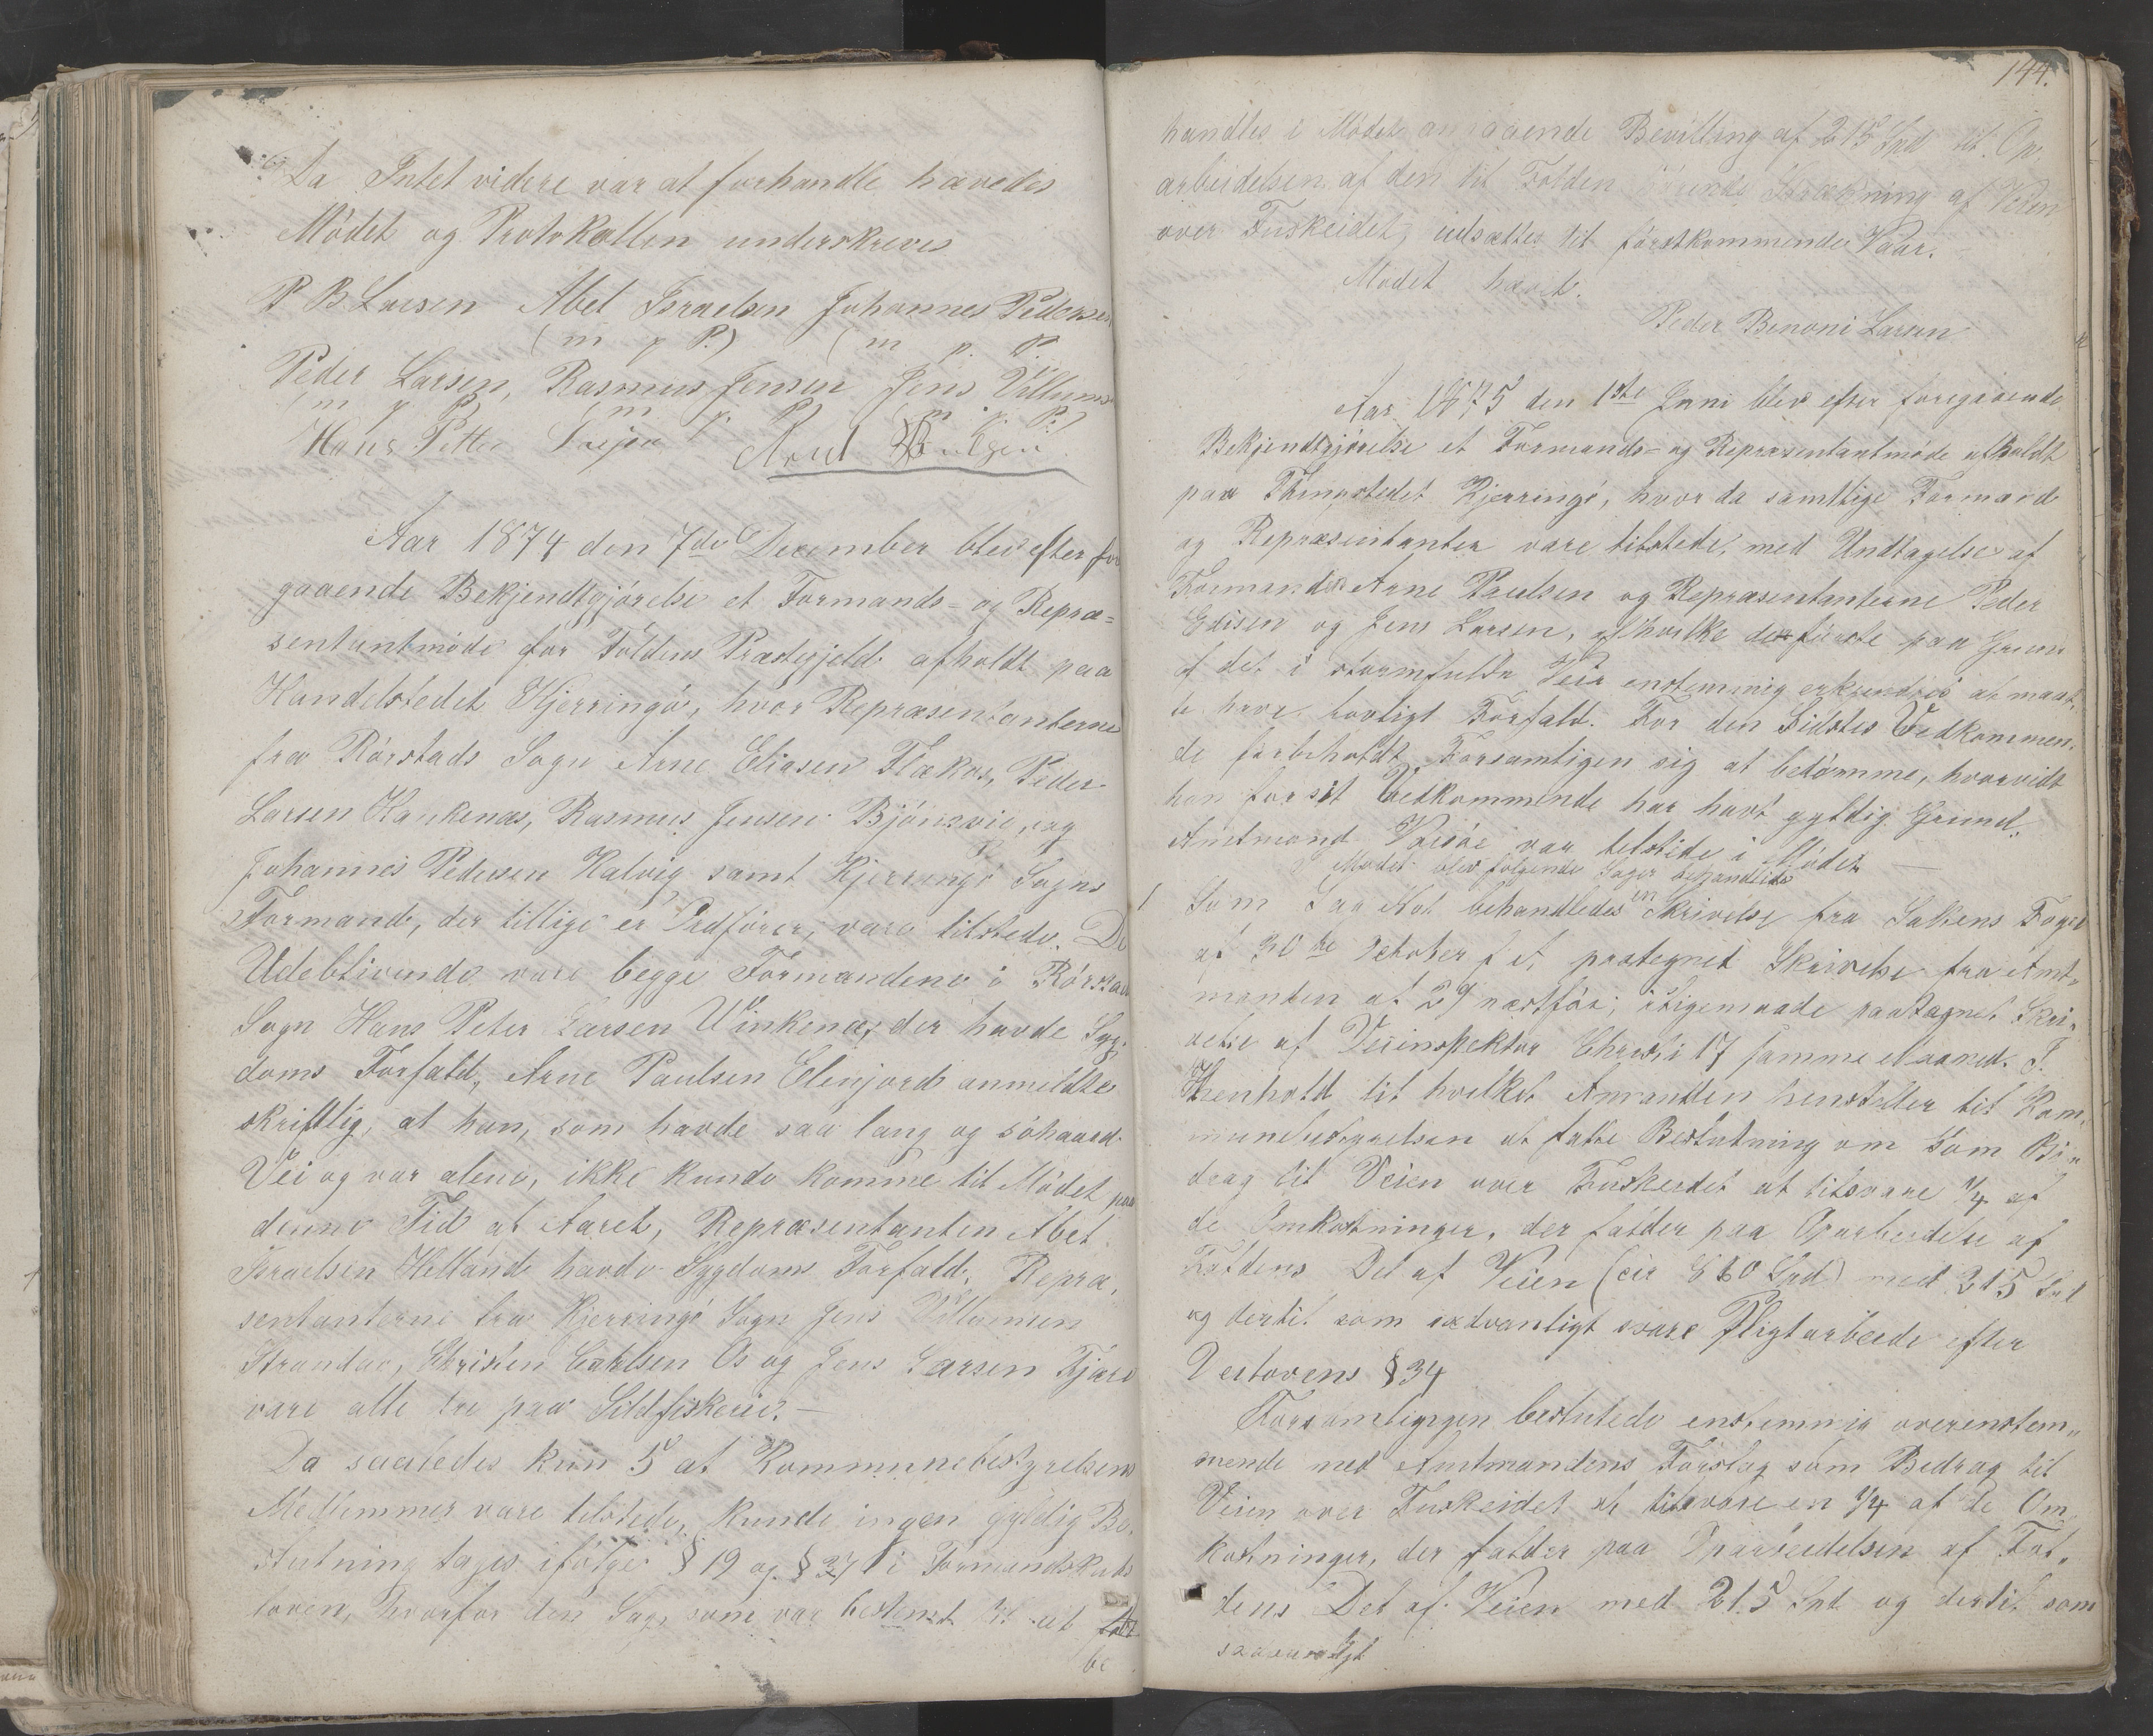 Da Intet videre var at forhandle hævedes
Mödet og Protokollen underskreves
P B Larsen Abel Israelsen Johannes Pedersen
(m p P.) (m p. P.
Peder Larsen, Rasmus Jensen Jens Villums
(m p P) (m p. P) (m. p. P.)
Hans Petter
Aar 1874 den 7de December blev efter for
gaaende Bekjendtgjörelse et Formands- og Repræ=
sentantmöde for Foldens Præstegjeld afholdt paa
Handelstedet Kjerringö, hvor Repræsentanterne
fra Rörstads Sogn Arne Eliasen Flakas, Peder
Larsen Kaukenæs, Rasmus Jensen Björsvik, og
Johannes Pedersen Kalvig samt Kjerringö Sogns
Formand, der tillige er Ordförer, vare tilstede. De
Udeblivende vare begge Formændene i Rörstad
Sogn Hans Peter Larsen Winkenæs, der havde Syg-
doms Forfald, Arne Paulsen Elvfjord anmeldte
skriftlig, at han, som havde saa lang og söhaard
Vei og var alene, ikke kunde komme til Mödet paa
denne Tid at Aaret, Repræsentanten Abel
Israelsen Helland havde Sygdoms Forfald, Repræ,
sentanterne fra Kjerringö Sogn Jens Villumsen
Strandæ, Christen Carlsen Os og Jens Larsen Fjære
vare alle tre paa Sildfiskerie. —
Da saaledes kun 5 af Kommunebestyrelsens
Medlemmer vare tilstede, kunde ingen gyldig Be,
slutning tages ifölge § 19 og § 37 i Formandskabs
loven, hvorfor den Sag, som var bestemt til at
be
144.
handles i Mödet angaaende Bevilling af 215 Spd til Op,
arbeidelsen af den til Folden hörende Strækning af Veien
over Fuskeidet, udsættes til förstkommende Vaar.
Mödet hævet.
Peder Benoni Larsen
Aar 1875 den 1ste Juni blev efter foregaaende
Bekjendtgjörelse et Formands- og Repræsentantmöde afholdt
paa Thingstedet Kjerringö, hvor da samtlige Formænd
og Repræsentanter vare tilstede, med Undtagelse af
Formanden Arne Paulsen og Repræsentanterne Peder
Edisen og Jens Larsen, af hvilke den förste paa Grund
af det i stormfulde Veir enstemmig erkjendtes at maat,
te have lovligt Forfald. For den Sidstes Vedkommen,
de forbeholdt Forsamligen sig at bedömme, hvorvidt
han for sit Vedkommende har havt gyldig Grund.
Amtmand Worsöe var tilstede i Mödet —
I Mödet blev fölgende Sager behandlede
1 Som Sag No 1 behandledes en Skrivelse fra Saltens Foged
af 30te October f A, paategnet Skrivelse fra Amt,
manden af 29 næstför; ligemaade paategnet Skri,
velse af Veiinspektör Christi 17 samme Maaned. I
Henhold til hvilket Amtmanden henstiller til Kom,
munebestyrelsen at fatte Beslutning om som Bi,,
drag til Veien over Fuskeidet at tilsvare 1/4 af
de Omkostninger, der falder paa Oparbeidelse af
Foldens Del af Veien (cir 860 Spd) med 215 Spd
og dertil som sædvanligt svare Pligtarbeide efter
Veilovens § 34
Forsamligngen besluttede enstemmig overenstem,,
mende med Amtmandens Forslag som Bedrag til
Veien over Fuskeidet at tilsvare en 1/4 af de Om,
kostninger, der falder paa Oparbeidelsen af Fol,
dens Del af Veien med 215 Spd og dertil som